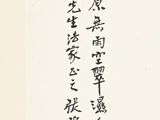 原無雨空翠濕
先生法家正之 張